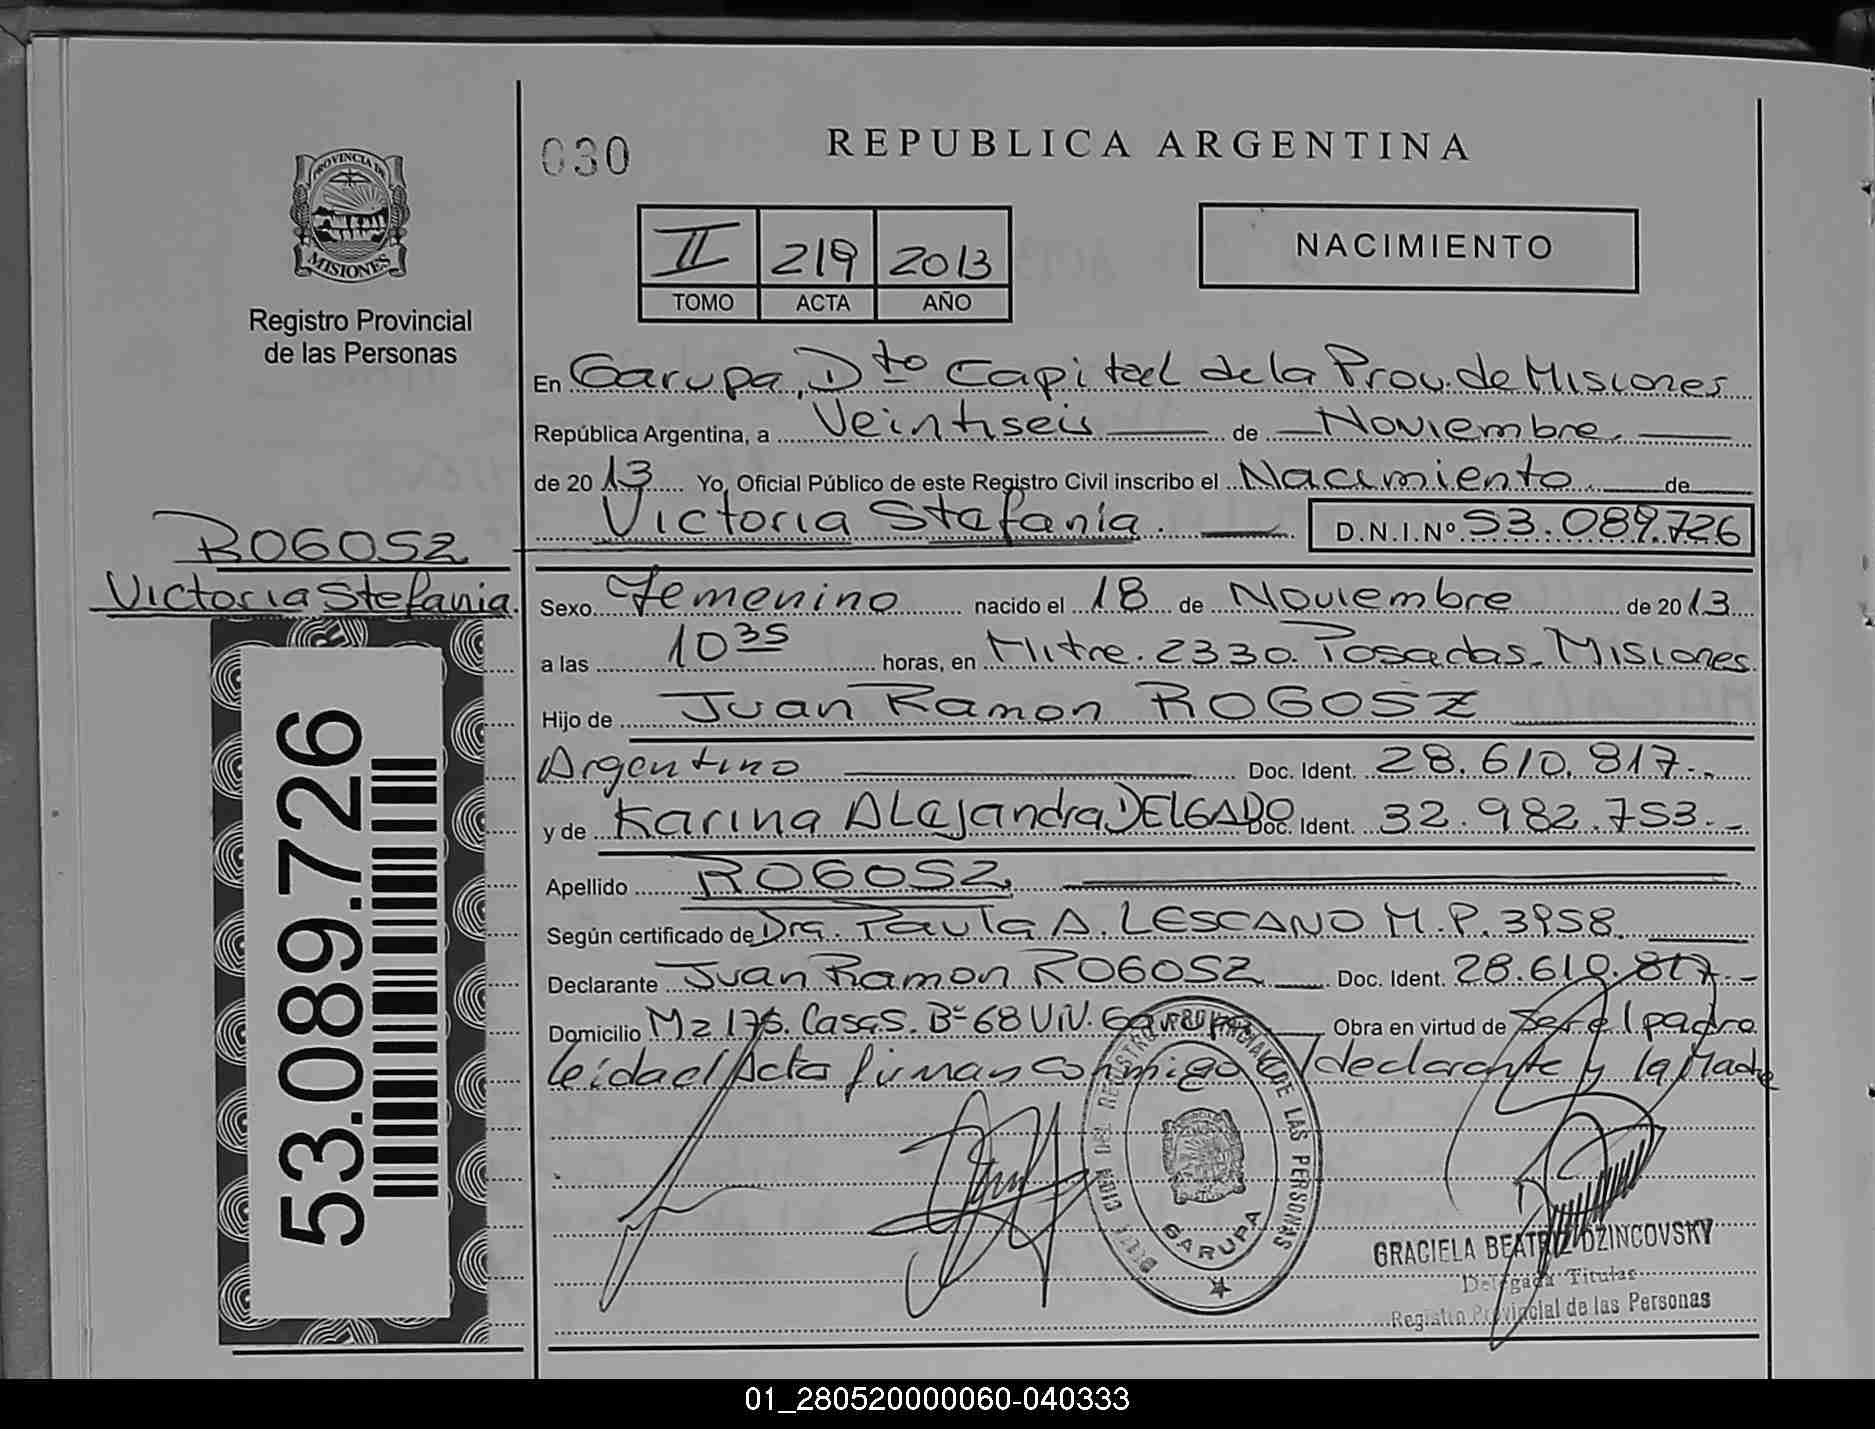 030
REPUBLICA ARGENTINA
PROVINCIA DE
MISIONES
Registro Provincial
de las Personas
II 219 2013
TOMO ACTA AÑO
NACIMIENTO
En Garupa, Dto Capital de la Prov. de Misiones
República Argentina, a Veintiseis de Noviembre
de 2013 Yo, Oficial Público de este Registro Civil inscribo el Nacimiento de
Victoria Stefania. D.N.I.Nº 53.089.726
ROGOSZ
Victoria Stefania.
Sexo Femenino nacido el 18 de Noviembre de 2013
a las 10 35 horas, en Mitre. 2330. Posadas. Misiones
Hijo de Juan Ramon ROGOSZ
Argentino Doc. Ident. 28.610.817.-
y de Karina Alejandra DELGADO Doc. Ident. 32.982.753.-
Apellido ROGOSZ
Según certificado de Dra. Paula A. LESCANO M.P. 3958
Declarante Juan Ramon ROGOSZ Doc. Ident. 28.610.817.-
Domicilio Mz 175. Casa 5. Bº 68 Viv. Garupa Obra en virtud de ser el padre
leida el Acta firman conmigo el declarante y la Madre
53.089.726
REGISTRO PROVINCIAL DE LAS PERSONAS
GARUPA
GRACIELA BEATRIZ DZINCOVSKY
Delegada Titular
Registro Provincial de las Personas
01_280520000060-040333